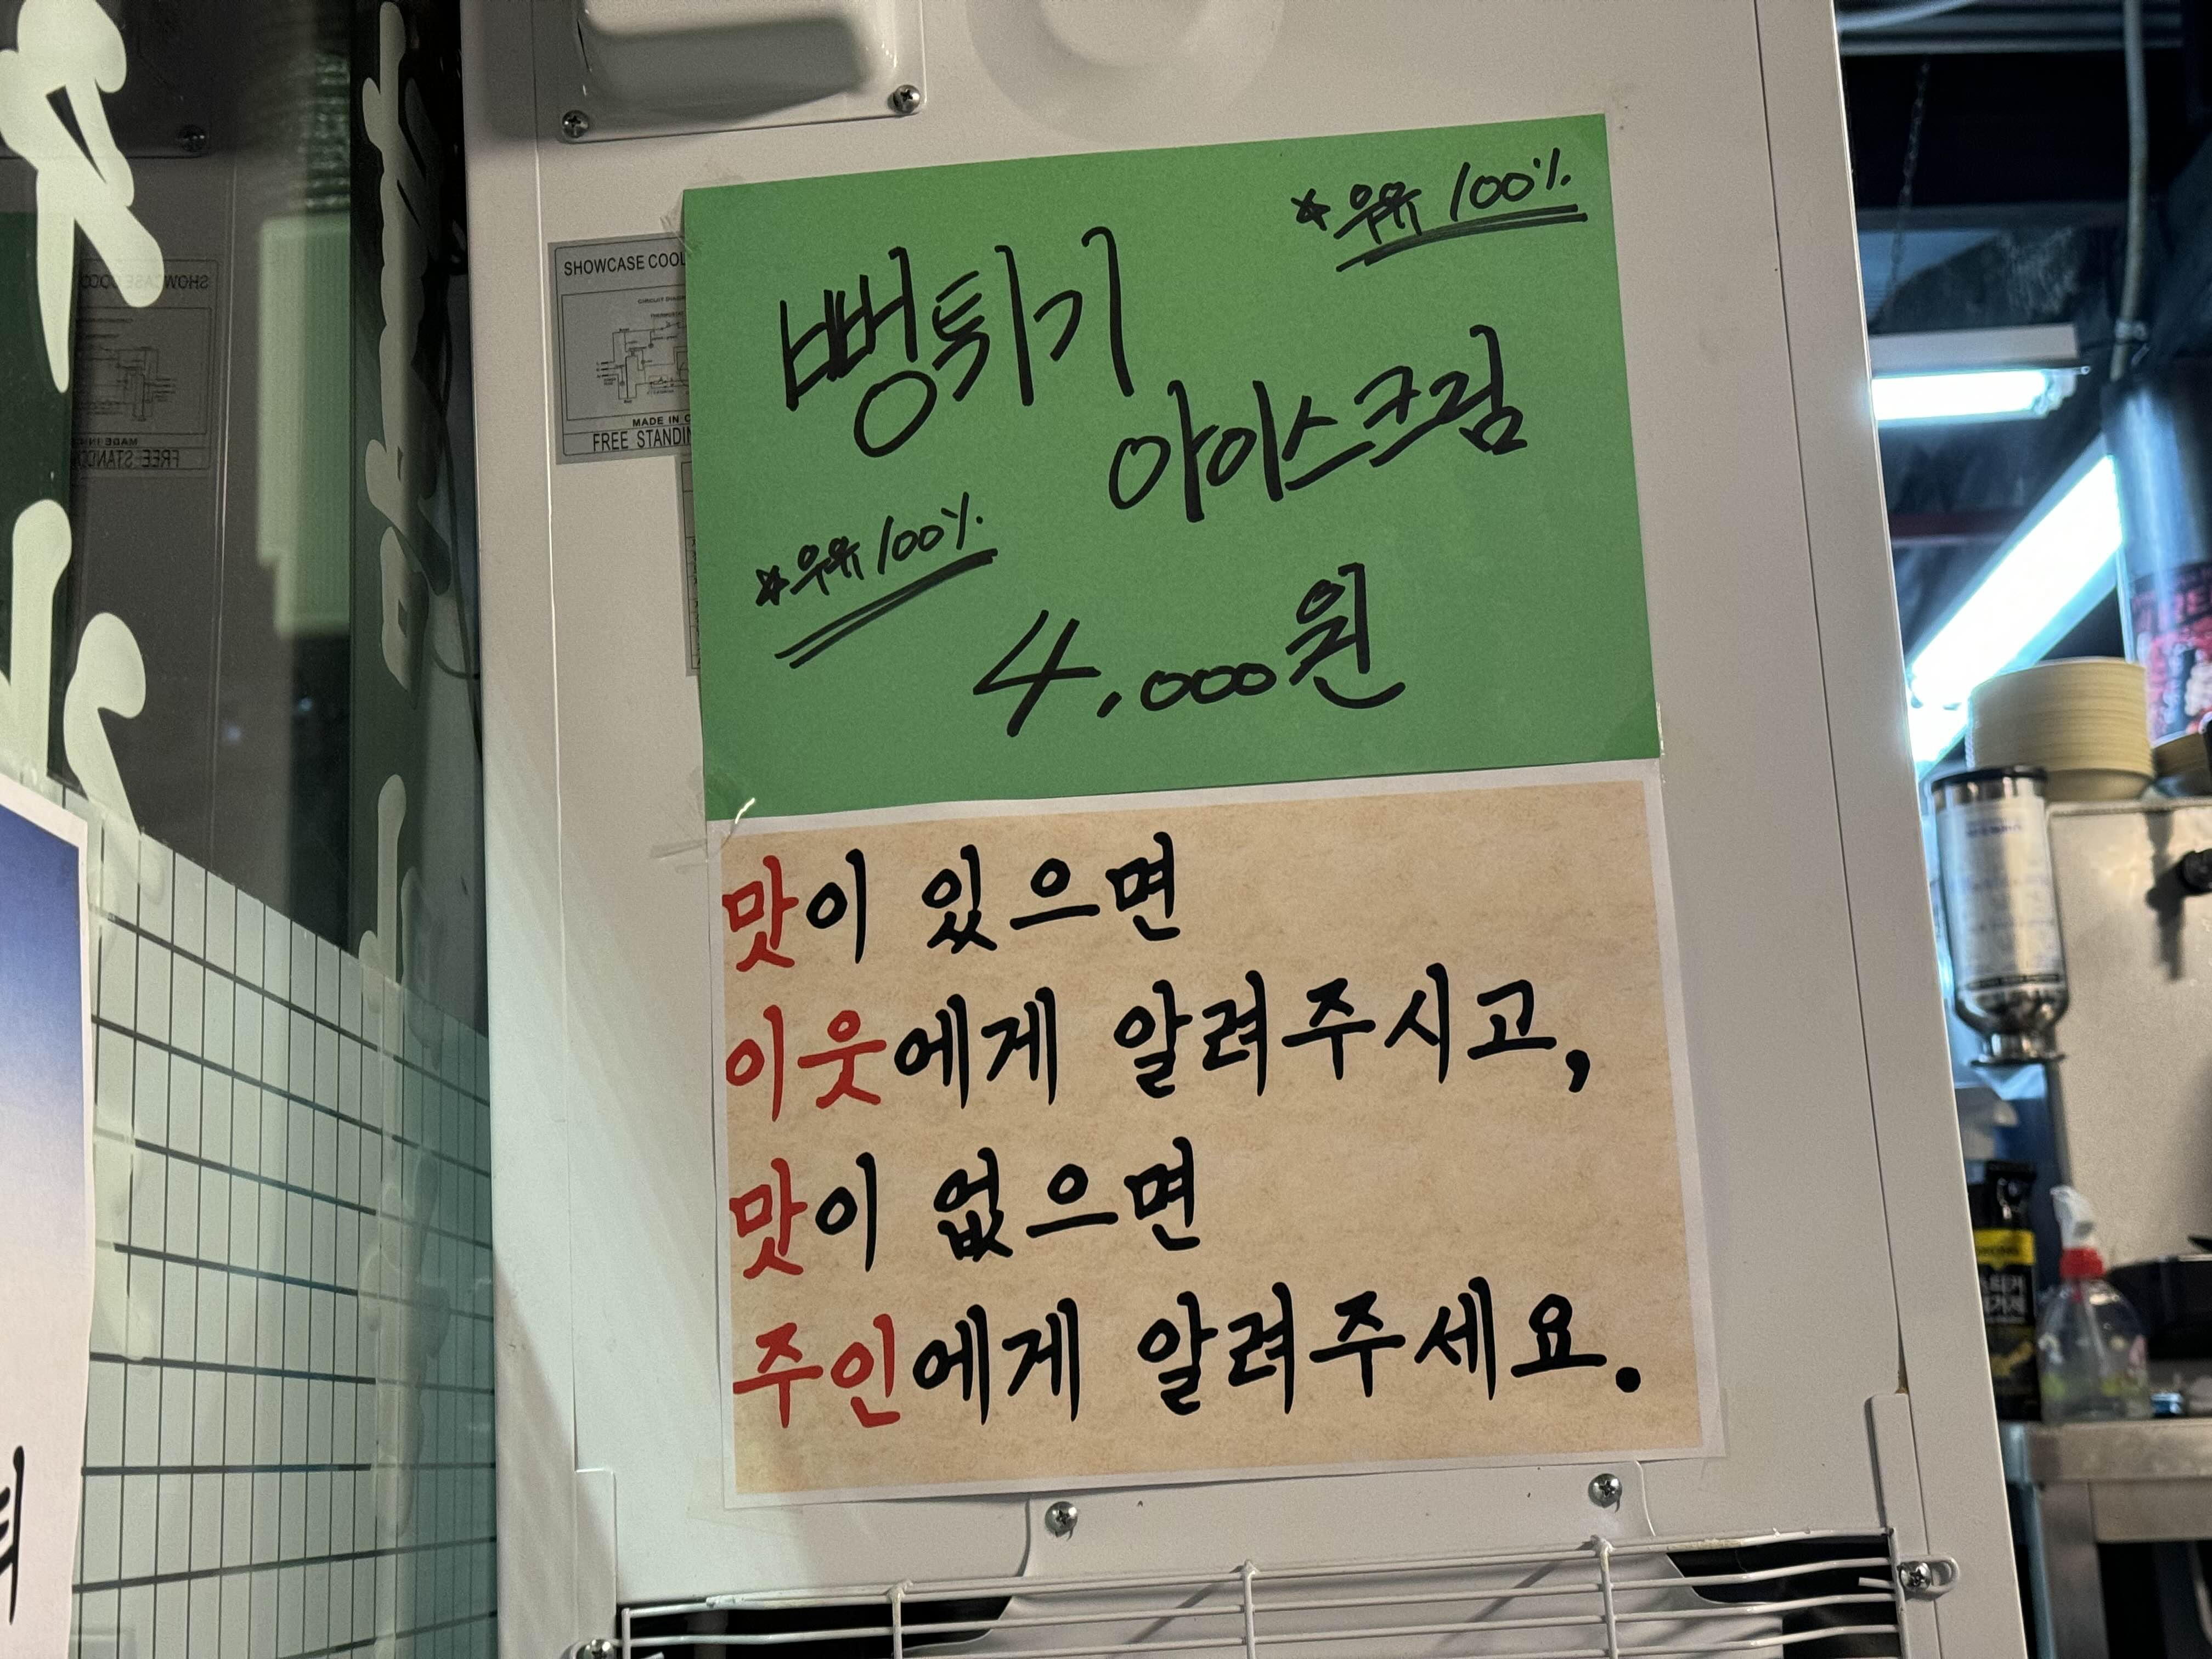 SHOWCASE COOL
CIRCUIT DIAGR
MADE IN C
FREE STANDIN
*우유 100%
뻥튀기
아이스크림
*우유 100%
4,000원
맛이 있으면
이웃에게 알려주시고,
맛이 없으면
주인에게 알려주세요.